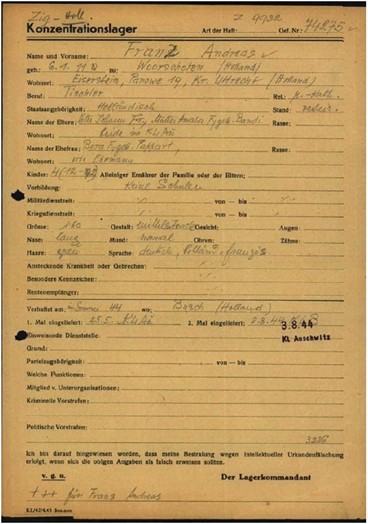 Zig-Holl. Z 9932
Konzentrationslager Art der Haft: Gef. Nr.: 74275
Name und Vorname: Franz Andreas
geb.: 6.1.1910 zu: Woorschoten (Holland)
Wohnort: Eisenstein, 19, Kr. Utrecht (Holland)
Beruf: Tischler Rel.: r.-kath.
Staatsangehörigkeit: Holländisch Stand: verheir.
Name der Eltern: Rasse:
Wohnort: beide im KL Au
Name der Ehefrau: Rasse:
Wohnort: wie Ehemann
Kinder: 4 Alleiniger Ernährer der Familie oder der Eltern:
Vorbildung: keine Schulen
Militärdienstzeit: von — bis
Kriegsdienstzeit: von — bis
Grösse: 160 Gestalt: mittelstark Gesicht: Augen:
Nase: lang Mund: normal Ohren: Zähne:
Haare: grau Sprache: deutsch, holländ., französ.
Ansteckende Krankheit oder Gebrechen:
Besondere Kennzeichen:
Rentenempfänger:
Verhaftet am: Sommer 44 wo: Bosch (Holland)
1. Mal eingeliefert: 2. Mal eingeliefert: 2.8.44
3.8.44
Kl. Auschwitz
Einweisende Dienststelle:
Grund:
Parteizugehörigkeit: von — bis
Welche Funktionen:
Mitglied v. Unterorganisationen:
Kriminelle Vorstrafen:
Politische Vorstrafen:
3226
Ich bin darauf hingewiesen worden, dass meine Bestrafung wegen intellektueller Urkundenfälschung
erfolgt, wenn sich die obigen Angaben als falsch erweisen sollten.
v. g. u. Der Lagerkommandant
+++ für Franz Andreas